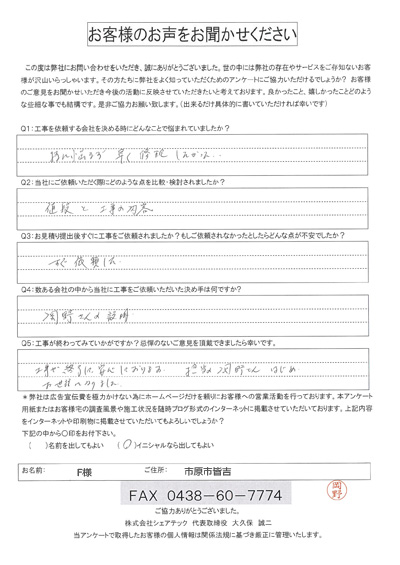 お客様のお声をお聞かせください
この度は弊社にお問い合わせをいただき、誠にありがとうございました。世の中には弊社の存在やサービスをご存知ないお客
様が沢山いらっしゃいます。その方たちに弊社をよく知っていただくためのアンケートにご協力いただけるでしょうか? お客様
のご意見をお聞かせいただき今後の活動に反映させていただきたいと考えております。良かったこと、嬉しかったことどのよう
な些細な事でも結構です。是非ご協力お願い致します。(出来るだけ具体的に書いていただければ幸いです)
Q1:工事を依頼する会社を決める時にどんなことで悩まれていましたか?
早く修理
Q2:当社にご依頼いただく際にどのような点を比較・検討されましたか?
値段と工事の内容
Q3:お見積り提出後すぐに工事をご依頼されましたか?もしご依頼されなかったとしたらどんな点が不安でしたか?
すぐ依頼した
Q4:数ある会社の中から当社に工事をご依頼いただいた決め手は何ですか?
岡野さんの説明
Q5:工事が終わってみていかがですか?忌憚のないご意見を頂戴できましたら幸いです。
工事が終了して安心しております。担当の岡野さんはじめ
お世話になりました。
*弊社は広告宣伝費を極力かけない為にホームページだけを頼りにお客様への営業活動を行っております。本アンケート
用紙またはお客様宅の調査風景や施工状況を随時ブログ形式のインターネットに掲載させていただいております。上記内容
をインターネットや印刷物に掲載させていただいてもよろしいでしょうか?
下記の中から〇印をお付け下さい。
( )名前を出してもよい (〇)イニシャルなら出してもよい
お名前: F様 ご住所: 市原市皆吉
FAX 0438-60-7774
岡野
ご協力ありがとうございました。
株式会社シェアテック 代表取締役 大久保 誠二
当アンケートで取得したお客様の個人情報は関係法規に基づき厳正に管理いたします。